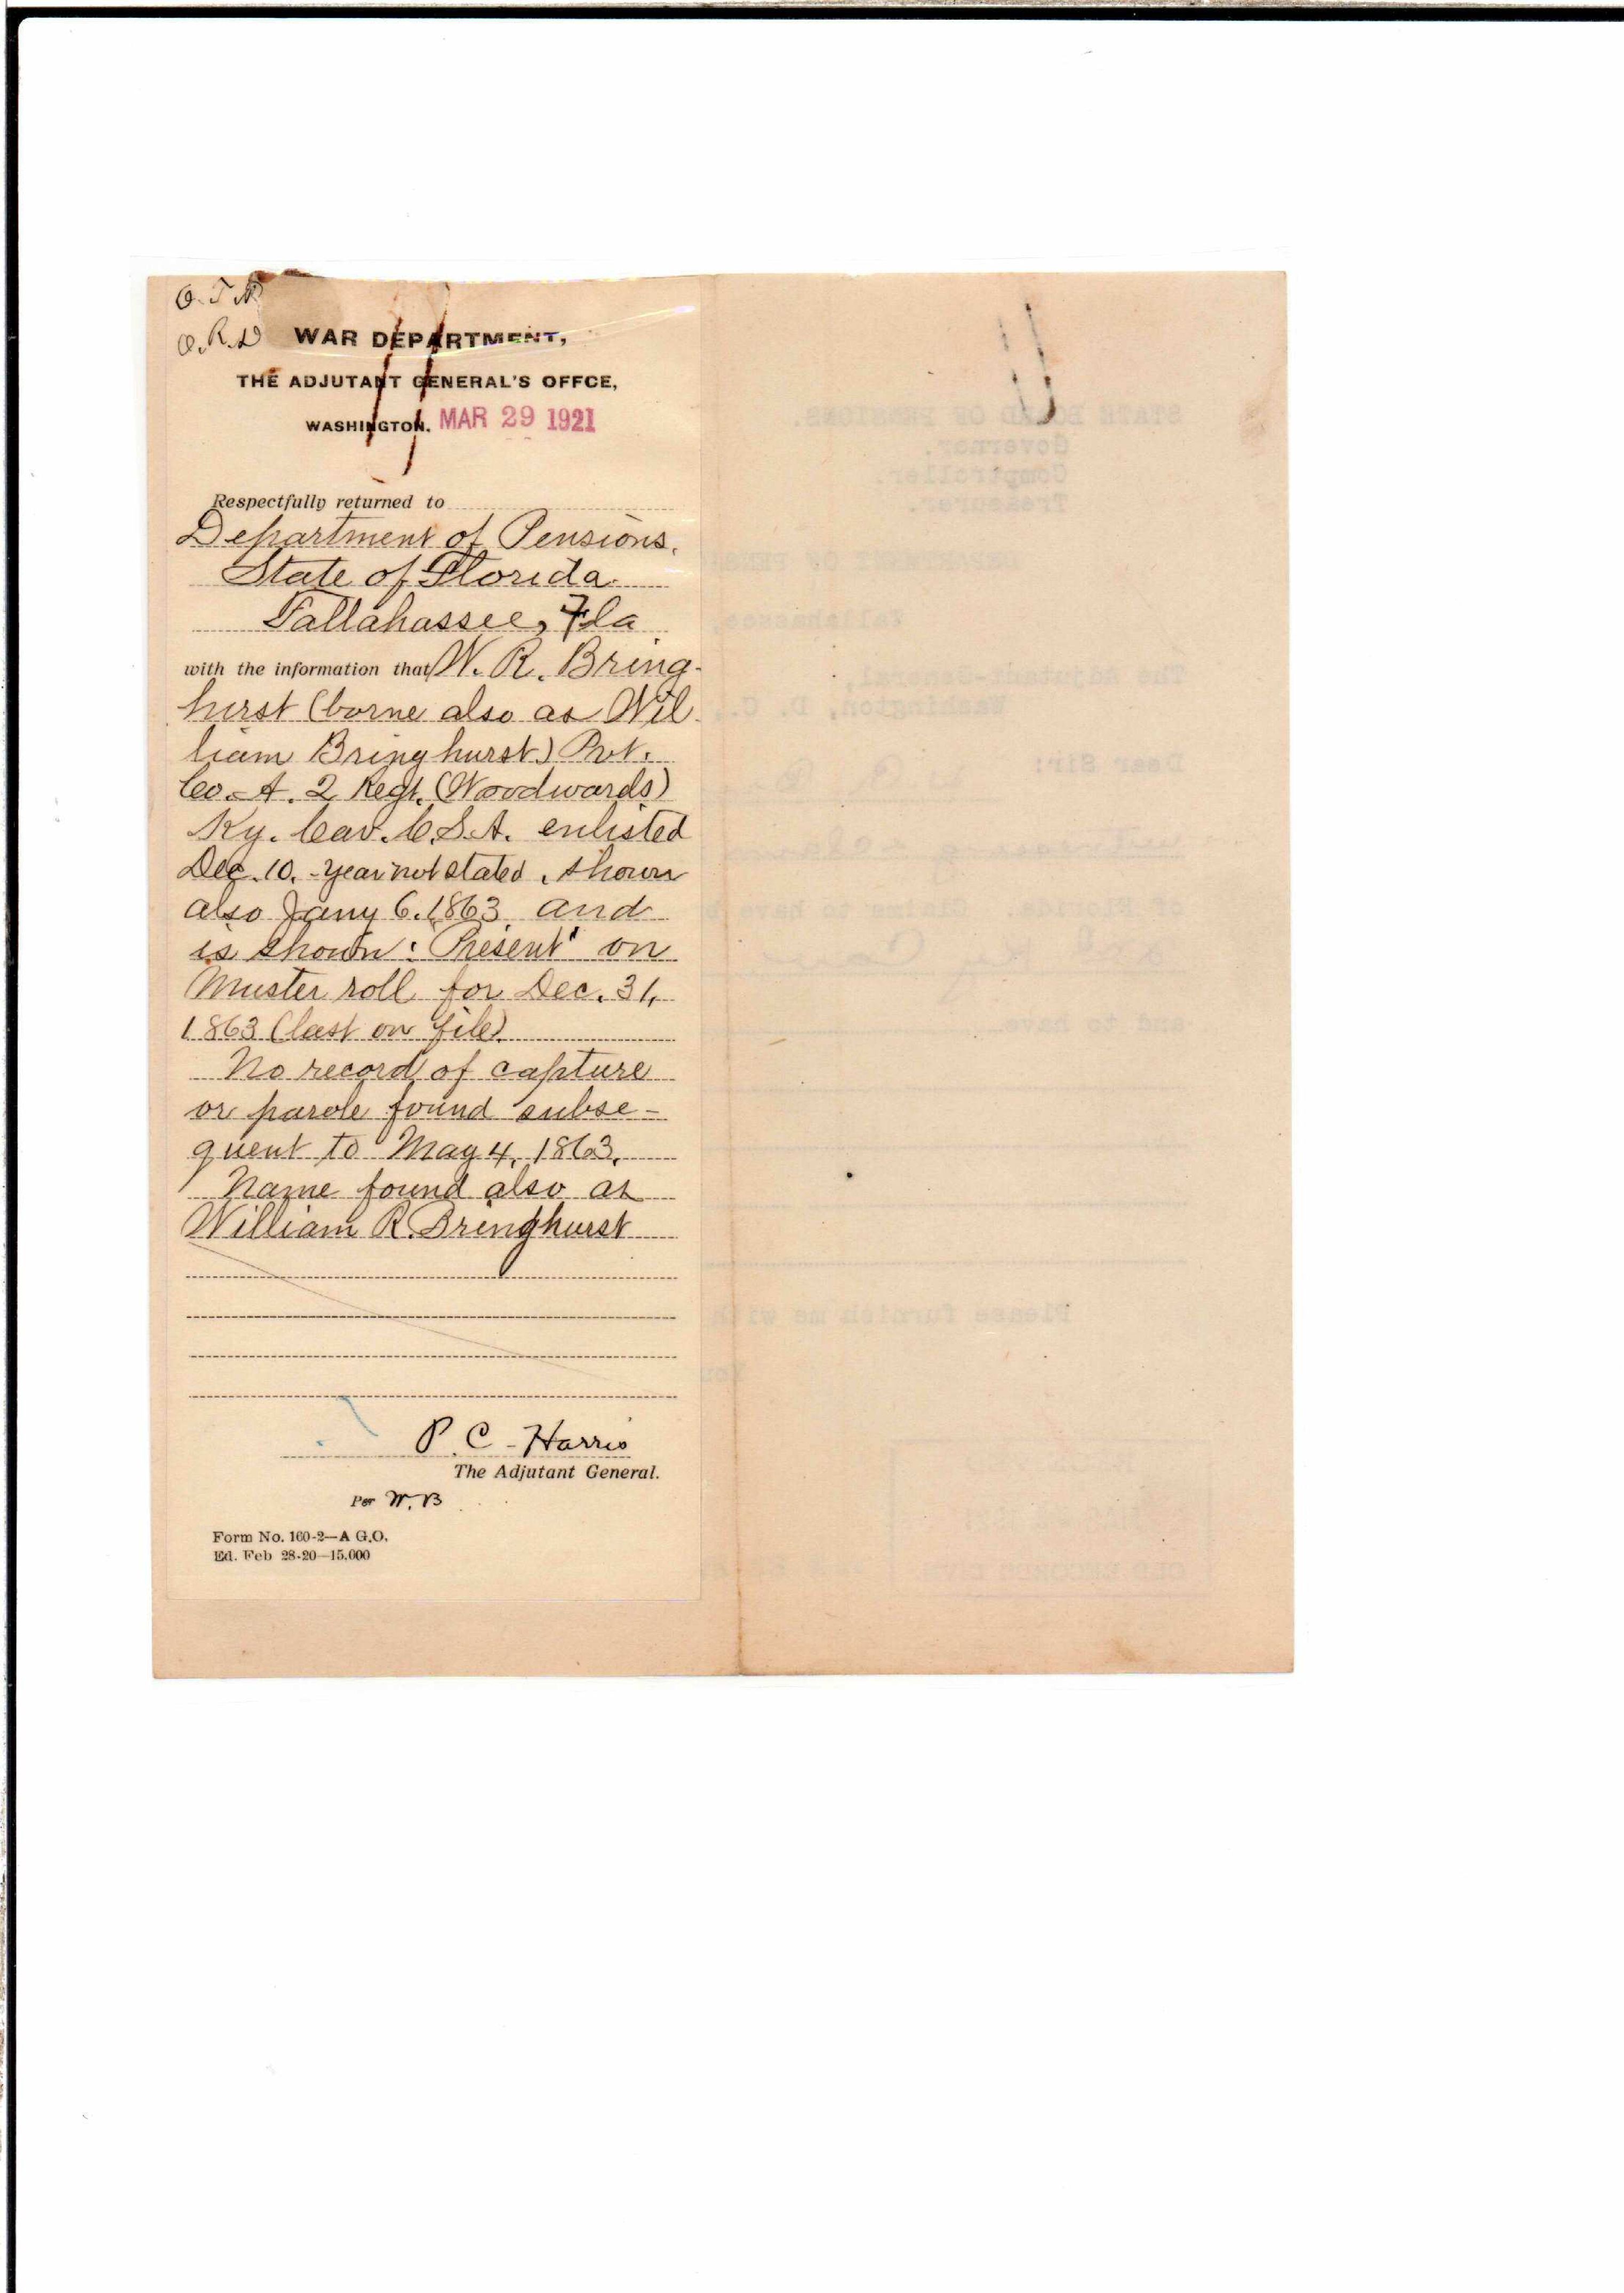 O.R.D
WAR DEPARTMENT,
THE ADJUTANT GENERAL'S OFFCE,
WASHINGTON. MAR 29 1921
Respectfully returned to
Department of Pensions,
State of Florida.
Tallahassee, Fla
with the information that W. R. Bring-
hurst (borne also as Wil-
liam Bringhurst) Pvt.
Co. A. 2 Regt. (Woodwards)
Ky. Cav. C.S.A. enlisted
Dec. 10. - year not stated, shown
also Jany 6. 1863 and
is shown: "Present" on
Muster roll for Dec. 31,
1863 (last on file).
No record of capture
or parole found subse-
quent to May 4, 1863.
Name found also as
William R. Bringhurst
P. C. Harris
The Adjutant General.
Per W. B
Form No. 160-2—A G.O.
Ed. Feb 28-20—15.000
STATE BOARD OF PENSIONS.
Governor.
Comptroller.
Treasurer.
DEPARTMENT OF PENS
Tallahassee,
The Adjutant-General,
Washington, D. C.,
Dear Sir:
of Florida. Claims to have b
and to have
Please furnish me with
You
OLD RECORDS DIV